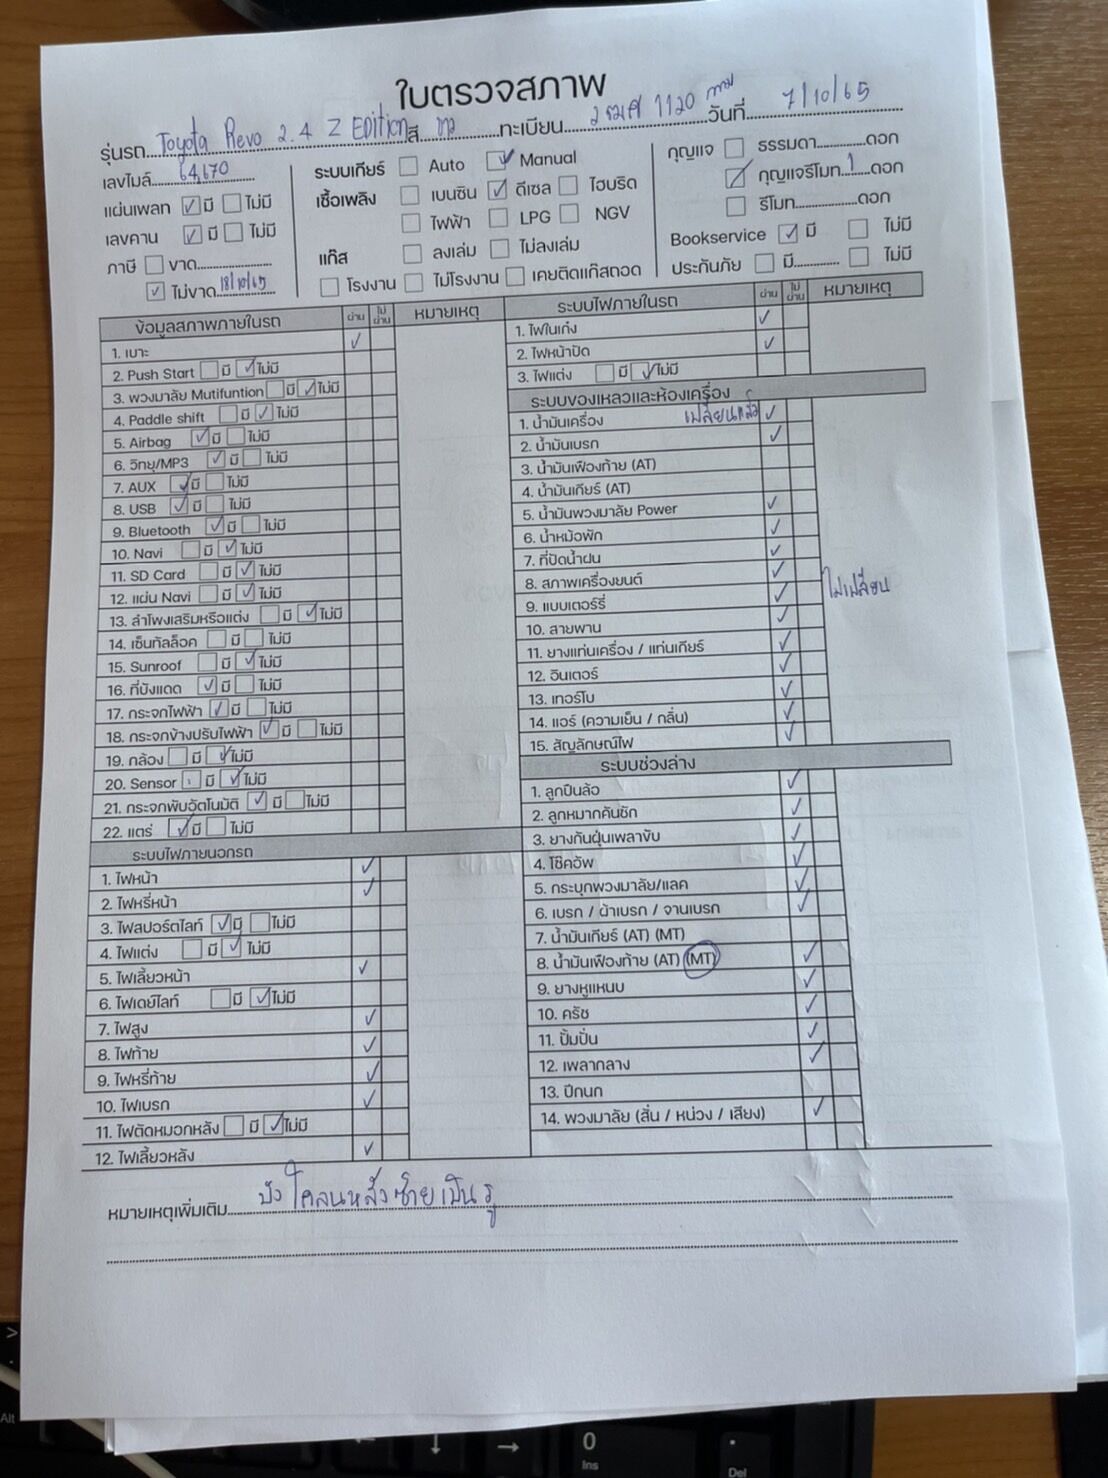 ใบตรวจสภาพ
รุ่นรถ Toyota Revo 2.4 Z Edition สี ขาว ทะเบียน 2ฒศ 1120 กทม วันที่ 7/10/65
เลขไมล์ 64,670
แผ่นเพลท ☑ มี ☐ ไม่มี
เลขคาน ☑ มี ☐ ไม่มี
ภาษี ☐ ขาด
☑ ไม่ขาด 18/10/65
ระบบเกียร์ ☐ Auto ☑ Manual
เชื้อเพลิง ☐ เบนซิน ☑ ดีเซล ☐ ไฮบริด
☐ ไฟฟ้า ☐ LPG ☐ NGV
แก๊ส ☐ ลงเล่ม ☐ ไม่ลงเล่ม
☐ โรงงาน ☐ ไม่โรงงาน ☐ เคยติดแก๊สถอด
กุญแจ ☐ ธรรมดา ดอก
☑ กุญแจรีโมท 1 ดอก
☐ รีโมท ดอก
Bookservice ☑ มี ☐ ไม่มี
ประกันภัย ☐ มี ☐ ไม่มี
ข้อมูลสภาพภายในรถ ผ่าน ไม่ผ่าน หมายเหตุ
1. เบาะ ✓
2. Push Start ☐ มี ☑ ไม่มี
3. พวงมาลัย Mutifuntion ☐ มี ☑ ไม่มี
4. Paddle shift ☐ มี ☑ ไม่มี
5. Airbag ☑ มี ☐ ไม่มี
6. วิทยุ/MP3 ☑ มี ☐ ไม่มี
7. AUX ☑ มี ☐ ไม่มี
8. USB ☑ มี ☐ ไม่มี
9. Bluetooth ☑ มี ☐ ไม่มี
10. Navi ☐ มี ☑ ไม่มี
11. SD Card ☐ มี ☑ ไม่มี
12. แผ่น Navi ☐ มี ☑ ไม่มี
13. ลำโพงเสริมหรือแต่ง ☐ มี ☑ ไม่มี
14. เซ็นทัลล็อค ☐ มี ☐ ไม่มี
15. Sunroof ☐ มี ☑ ไม่มี
16. ที่บังแดด ☑ มี ☐ ไม่มี
17. กระจกไฟฟ้า ☑ มี ☐ ไม่มี
18. กระจกข้างปรับไฟฟ้า ☑ มี ☐ ไม่มี
19. กล้อง ☐ มี ☑ ไม่มี
20. Sensor ☐ มี ☑ ไม่มี
21. กระจกพับอัตโนมัติ ☑ มี ☐ ไม่มี
22. แตร่ ☑ มี ☐ ไม่มี
ระบบไฟภายนอกรถ
1. ไฟหน้า ✓
2. ไฟหรี่หน้า ✓
3. ไฟสปอร์ตไลท์ ☑ มี ☐ ไม่มี
4. ไฟแต่ง ☐ มี ☑ ไม่มี
5. ไฟเลี้ยวหน้า ✓
6. ไฟเดย์ไลท์ ☐ มี ☑ ไม่มี
7. ไฟสูง ✓
8. ไฟท้าย ✓
9. ไฟหรี่ท้าย ✓
10. ไฟเบรก ✓
11. ไฟตัดหมอกหลัง ☐ มี ☑ ไม่มี
12. ไฟเลี้ยวหลัง ✓
ระบบไฟภายในรถ ผ่าน ไม่ผ่าน หมายเหตุ
1. ไฟในเก๋ง ✓
2. ไฟหน้าปัด ✓
3. ไฟแต่ง ☐ มี ☑ ไม่มี
ระบบของเหลวและห้องเครื่อง
1. น้ำมันเครื่อง เปลี่ยนแล้ว ✓
2. น้ำมันเบรก ✓
3. น้ำมันเฟืองท้าย (AT)
4. น้ำมันเกียร์ (AT)
5. น้ำมันพวงมาลัย Power ✓
6. น้ำหม้อพัก ✓
7. ที่ปัดน้ำฝน ✓
8. สภาพเครื่องยนต์ ✓
9. แบบเตอร์รี่ ✓ ไม่เปลี่ยน
10. สายพาน ✓
11. ยางแท่นเครื่อง / แท่นเกียร์ ✓
12. อินเตอร์ ✓
13. เทอร์โบ ✓
14. แอร์ (ความเย็น / กลิ่น) ✓
15. สัญลักษณ์ไฟ ✓
ระบบช่วงล่าง
1. ลูกปืนล้อ ✓
2. ลูกหมากคันชัก ✓
3. ยางกันฝุ่นเพลาขับ ✓
4. โช๊คอัพ ✓
5. กระบุกพวงมาลัย/แลค ✓
6. เบรก / ผ้าเบรก / จานเบรก ✓
7. น้ำมันเกียร์ (AT) (MT)
8. น้ำมันเฟืองท้าย (AT) (MT) ✓
9. ยางหูแหนบ ✓
10. ครัช ✓
11. ปั้มปั่น ✓
12. เพลากลาง ✓
13. ปีกนก
14. พวงมาลัย (สั่น / หน่วง / เสียง) ✓
หมายเหตุเพิ่มเติม บังโคลนหลังซ้ายเป็นรู